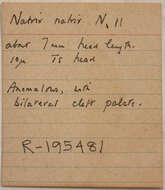 Natrix natrix N. 11
about 7mm head length.
10µ TS head
Anomalous, with
bilateral cleft palate.
R-195481